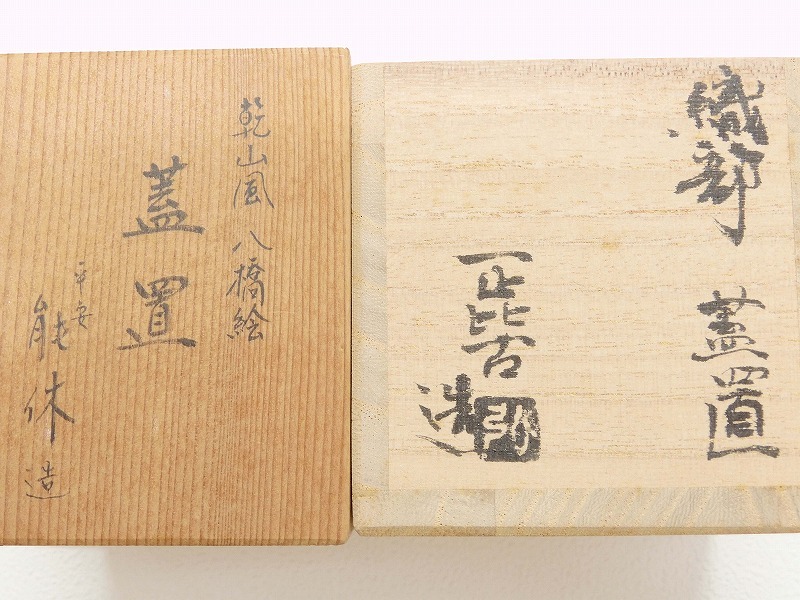 乾山風 八橋絵
蓋置
平安
能休
造
織部 蓋置
造